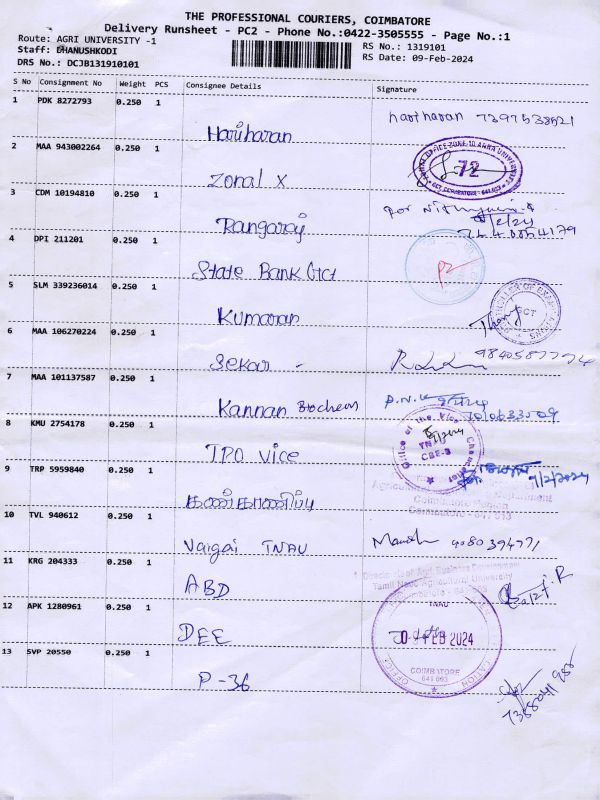 THE PROFESSIONAL COURIERS, COIMBATORE
Delivery Runsheet - PC2 - Phone No.:0422-3505555 - Page No.:1
Route: AGRI UNIVERSITY -1
Staff: DHANUSHKODI
DRS No.: DCJB131910101
RS No.: 1319101
RS Date: 09-Feb-2024
S No Consignment No Weight PCS Consignee Details Signature
1 PDK 8272793 0.250 1
Hariharan
hariharan 7397538521
2 MAA 943002264 0.250 1
Zonal X
72
3 CDM 10194810 0.250 1
Rangaraj
for
4 DPI 211201 0.250 1
State Bank
5 SLM 339236014 0.250 1
Kumaran
6 MAA 106270224 1
Sekar
9840587774
7 MAA 101137587 0.250 1
Kannan Biochem
8 KMU 2754178 0.250 1
TPO vice
Office of the Vice Chancellor
TNAU
CBE-3
9 TRP 5959840 0.250 1
கண்காணிப்பு
9/2/2024
10 TVL 940612 0.250 1
Vaigai TNAU
9080394771
11 KRG 204333 0.250 1
ABD
Directorate of Agri Business Development
Tamil Nadu Agricultural University
12 APK 1280961 0.250 1
DEE
TNAU
09 FEB 2024
COIMBATORE
641 003
13 SVP 20550 0.250 1
P-36